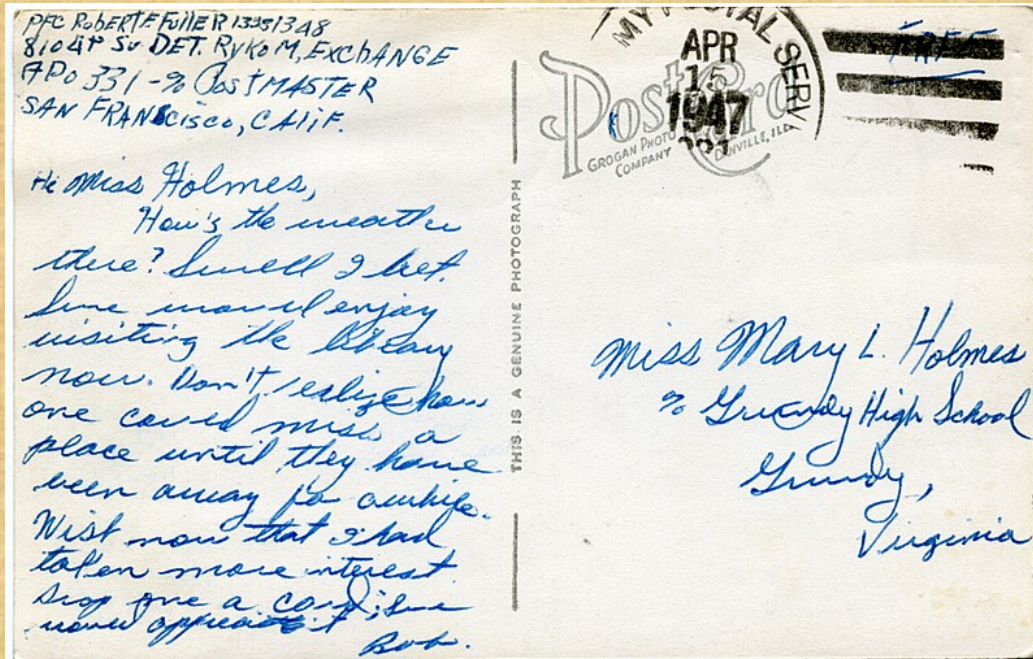 PFC Robert F Fuller 13351348
8104th Sv DET. RYKOM, EXCHANGE
APO 331 - % POSTMASTER
SAN FRANCISCO, CALIF.
Hi Miss Holmes,
How's the weather
there? Swell I bet.
Sure would enjoy
visiting the library
now. Don't realize how
one could miss a
place until they have
been away for awhile.
Wish now that I had
taken more interest.
Drop me a card; Sure
would appreciate it
Bob.
THIS IS A GENUINE PHOTOGRAPH
MY POSTAL SERV
APR
15
1947
331
FREE
Post Card
GROGAN PHOTO
COMPANY
DANVILLE, ILL.
Miss Mary L. Holmes
% Grundy High School
Grundy,
Virginia